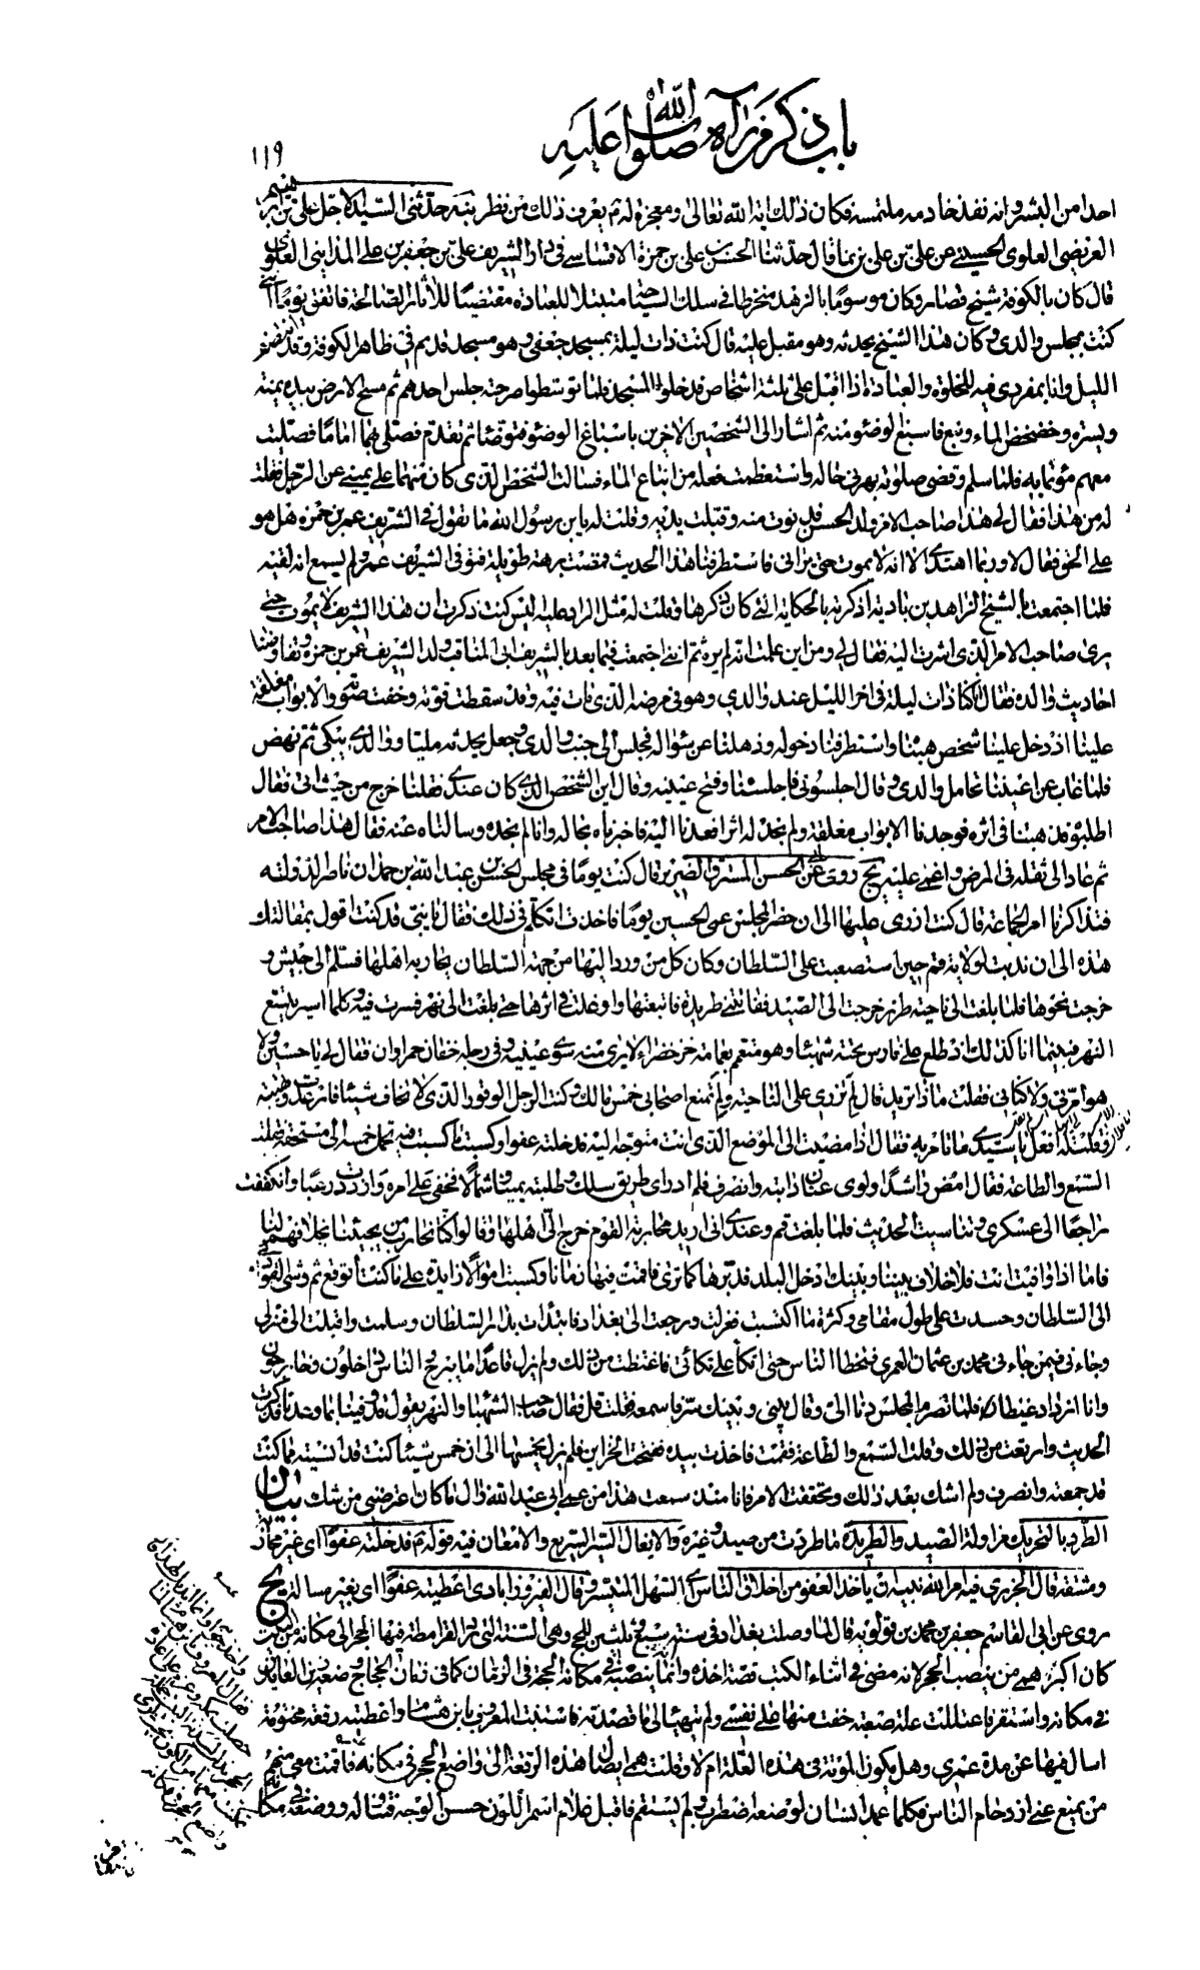 باب ذكر من رآه صلوات الله عليه
١١٩
احدا من البشر وانه نفذ خادمه ملتمسه فكان ذلك اية الله تعالى ومعجزة له ثم يعرف ذلك من نظر تنبه حدثنى السيد الاجل على بن ابرهيم
العريضى العلوى الحسينى عن على بن على بن نما قال حدثنا الحسن بن على بن حمزة الاقساسى فى دار الشريف على بن جعفر بن على المداينى العلوى
قال كان بالكوفة شيخ قصار وكان موسوما بالزهد منخرطا فى سلك السياحة متبتلا للعبادة مقتضيا للاثار الصالحة فاتفق يوما انى
كنت بمجلس والدى وكان هذا الشيخ يحدثه وهو مقبل عليه قال كنت ذات ليلة بمسجد جعفى وهو مسجد قديم فى ظاهر الكوفة وقد انتصف
الليل وانا بمفردى فيه للخلوة والعبادة اذا اقبل على ثلثة اشخاص فدخلوا المسجد فلما توسطوا صرحته جلس احدهم ثم مسح الارض بيده يمنة
ويسرة وخضخض الماء ونبع فاسبغ الوضوء منه ثم اشار الى الشخصين الاخرين باسباغ الوضوء فتوضئا ثم تقدم فصلى بهما اماما فصليت
معهم مؤتما به فلما سلم وقضى صلوته بهرنى حاله واستعظمت فعله من انباع الماء فسالت الشخص الذى كان منهما على يمينى عن الرجل فقلت
له من هذا فقال لى هذا صاحب الامر ولد الحسن فدنوت منه وقبلت يديه وقلت له يا بن رسول الله ما تقول فى الشريف عمر بن حمزة هل هو
على الحق فقال لا وربما اهتدى الا انه لا يموت حتى يرانى فاستطرفنا هذا الحديث فمضت برهة طويلة فتوفى الشريف عمر ولم يسمع انه لقيه
فلما اجتمعت بالشيخ الزاهد بن بادية اذكرته بالحكاية التى كان ذكرها وقلت له مثل الراد عليه اليس كنت ذكرت ان هذا الشريف لا يموت حتى
يرى صاحب الامر الذى اشرت اليه فقال لى ومن اين علمت انه لم يره ثم اننى اجتمعت فيما بعد بالشريف ابى المناقب ولد الشريف عمر بن حمزة وتفاوضنا
احاديث والده فقال انا كنا ذات ليلة فى اخر الليل عند والدى وهو فى مرضه الذى مات فيه وقد سقطت قوته وخفت صوته والابواب مغلقة
علينا اذ دخل علينا شخص هبناه واستطرفنا دخوله وذهلنا عن سؤاله فجلس الى جنب والدى وجعل يحدثه مليا ووالدى يبكى ثم نهض
فلما غاب عن اعيننا تحامل والدى وقال اجلسونى فاجلسناه وفتح عينيه وقال اين الشخص الذى كان عندى فقلنا خرج من حيث اتى فقال
اطلبوه فذهبنا فى اثره فوجدنا الابواب مغلقة ولم نجد له اثرا فعدنا اليه فاخبرناه بحاله وانا لم نجده وسالناه عنه فقال هذا صاحب الامر
ثم عاد الى ثقله فى المرض واغمى عليه يج روى عن ابى الحسن المسترق الضرير قال كنت يوما فى مجلس الحسن بن عبد الله بن حمدان ناصر الدولة
فتذاكرنا امر الناحية قال كنت ازرى عليها الى ان حضر المجلس عمى الحسين يوما فاخذت اتكلم فى ذلك فقال يا بنى قد كنت اقول بمقالتك
هذه الى ان ندبت لولاية قم حين استصعبت على السلطان وكان كل من ورد اليها من جهة السلطان يحاربه اهلها فسلم الى جيش و
خرجت نحوها فلما بلغت الى ناحية طرز خرجت الى الصيد ففاتتنى طريدة فاتبعتها واوغلت فى اثرها حتى بلغت الى نهر فسرت فيه وكلما اسير يتسع
النهر فبينما انا كذلك اذ طلع على فارس تحته شهباء وهو متعمم بعمامة خز خضراء لا يرى منه سوى عينيه وفى رجله خفان حمراوان فقال لى يا حسين ولا
هو امرنى ولا كنانى فقلت ماذا تريد قال لم تزرى على الناحية ولم تمنع اصحابى خمس مالك وكنت الرجل الوقور الذى لا يخاف شيئا فارعدت وتهيبته
وقلت له افعل يا سيدى ما تامر به فقال اذا مضيت الى الموضع الذى انت متوجه اليه فدخلته عفوا وكسبت ما كسبت فيه تحمل خمسه الى مستحقه فقلت
السمع والطاعة فقال امض راشدا ولوى عنان دابته وانصرف فلم ادر اى طريق سلك وطلبته يمينا وشمالا فخفى على امره وازددت رعبا وانكففت
راجعا الى عسكرى وتناسيت الحديث فلما بلغت قم وعندى انى اريد محاربة القوم خرج الى اهلها وقالوا كنا نحارب من يجيئنا بخلافهم لنا
فاما اذا وافيت انت فلا خلاف بيننا وبينك ادخل البلد فدبرها كما ترى فاقمت فيها زمانا وكسبت اموالا زايدة على ما كنت اتوقع ثم وشى القواد بى
الى السلطان وحسدت على طول مقامى وكثرة ما اكتسبت فعزلت ورجعت الى بغداد فابتدات بدار السلطان وسلمت واقبلت الى منزلى
وجاءنى فيمن جاءنى محمد بن عثمان العمرى فتخطا الناس حتى اتكا على تكاتى فاغتظت من ذلك ولم يزل قاعدا ما يبرح الناس داخلون وخارجون
وانا ازداد غيظا فلما تصرم المجلس دنا الى وقال بينى وبينك سر فاسمعه فقلت قل فقال صاحب الشهباء والنهر يقول قد وفينا بما وعدنا فذكرت
الحديث وارتعت من ذلك وقلت السمع والطاعة فقمت فاخذت بيده ففتحت الخزاين فلم يزل يخمسها الى ان خمس شيئا كنت قد انسيته مما كنت
قد جمعته وانصرف ولم اشك بعد ذلك وتحققت الامر فانا منذ سمعت هذا من عمى ابى عبد الله زال ما كان اعترضنى من شك بيان
الطرد بالتحريك مزاولة الصيد والطريدة ما طردت من صيد وغيره والايغال السير السريع والامعان فيه قوله ثم فدخلته عفوا اى غير محاربة
ومشقة قال الجزرى فيه امر الله نبيه ان ياخذ العفو من اخلاق الناس اى السهل المتيسر وقال الفيروزابادى اعطيته عفوا اى بغير مسالة يج
روى عن ابى القاسم جعفر بن محمد بن قولويه قال لما وصلت بغداد فى سنة سبع وثلثين للحج وهى السنة التى رد القرامطة فيها الحجر الى مكانه من البيت
كان اكبر همى من ينصب الحجر لانه مضى فى اثناء الكتب قصة اخذه وانما ينصبه فى مكانه الحجة فى الزمان كما فى زمان الحجاج وضعه زين العابدين
فى مكانه واستقر فاعتللت علة صعبة خفت منها على نفسى ولم يتهيا لى ما قصدته فاستنبت المعروف بابن هشام واعطيته رقعة مختومة
اسال فيها عن مدة عمرى وهل يكون الموتة فى هذه العلة ام لا وقلت همى ايصال هذه الرقعة الى واضع الحجر فى مكانه فاقمت معى منهم
من يمنع عنى ازدحام الناس فكلما عمد انسان لوضعه اضطرب ولم يستقم فاقبل غلام اسمر اللون حسن الوجه فتناوله ووضعه فى مكانه